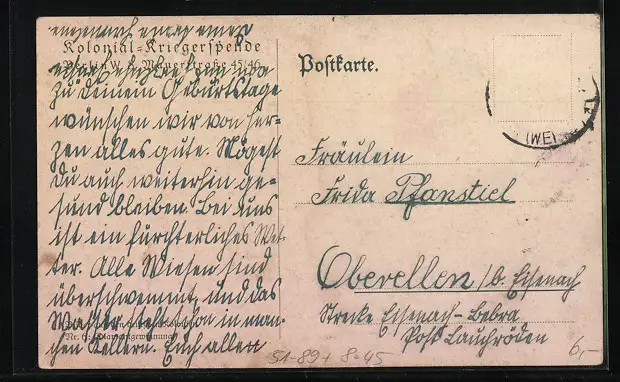 Kolonial-Kriegerspende
Berlin W. Mauerstraße 45/46
zu deinem Geburtstage
wünschen wir von her-
zen alles gute. Mögest
du auch weiterhin ge-
sund bleiben. Bei uns
ist ein fürchterliches Wet-
ter. Alle Wiesen sind
überschwemmt, und das
Wasser steht schon in man-
chen Kellern. Euch allen
Postkarte.
(WE)
Fräulein
Frida Pfanstiel
Oberellen /b. Eisenach
Strecke Eisenach-Bebra
Post Lauchröden
51-89+ 8-45
6,-